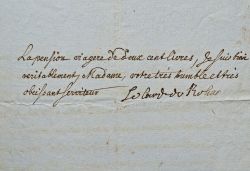 La pension viagere de deux cent livres, Je suis tres
veritablement, Madame, votre très humble et très
obeissant serviteur
Le Card. de Rohan